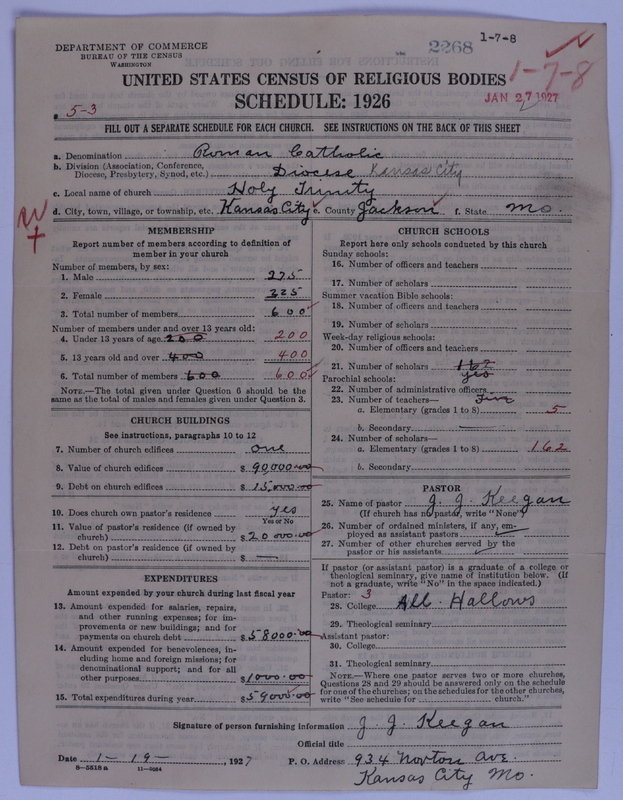 DEPARTMENT OF COMMERCE
BUREAU OF THE CENSUS
WASHINGTON
2268
1-7-8
1-7-8
UNITED STATES CENSUS OF RELIGIOUS BODIES
SCHEDULE: 1926
JAN 27 1927
5-3
FILL OUT A SEPARATE SCHEDULE FOR EACH CHURCH. SEE INSTRUCTIONS ON THE BACK OF THIS SHEET
a. Denomination Roman Catholic
b. Division (Association, Conference,
Diocese, Presbytery, Synod, etc.) Diocese Kansas City
c. Local name of church Holy Trinity
d. City, town, village, or township, etc. Kansas City e. County Jackson f. State Mo.
MEMBERSHIP
Report number of members according to definition of
member in your church
Number of members, by sex:
1. Male 275
2. Female 325
3. Total number of members 600
Number of members under and over 13 years old:
4. Under 13 years of age 200 200
5. 13 years old and over 400 400
6. Total number of members 600 600
NOTE.—The total given under Question 6 should be the
same as the total of males and females given under Question 3.
CHURCH BUILDINGS
See instructions, paragraphs 10 to 12
7. Number of church edifices one
8. Value of church edifices $ 90,000.00
9. Debt on church edifices $ 15,000.00
10. Does church own pastor's residence yes
Yes or No
11. Value of pastor's residence (if owned by
church) $ 20 000.00
12. Debt on pastor's residence (if owned by
church) $ —
EXPENDITURES
Amount expended by your church during last fiscal year
13. Amount expended for salaries, repairs,
and other running expenses; for im-
provements or new buildings; and for
payments on church debt $ 58000.00
14. Amount expended for benevolences, in-
cluding home and foreign missions; for
denominational support; and for all
other purposes $ 1000.00
15. Total expenditures during year $ 59000.00
CHURCH SCHOOLS
Report here only schools conducted by this church
Sunday schools:
16. Number of officers and teachers
17. Number of scholars
Summer vacation Bible schools:
18. Number of officers and teachers
19. Number of scholars
Week-day religious schools:
20. Number of officers and teachers
21. Number of scholars 162
Parochial schools: yes
22. Number of administrative officers
23. Number of teachers— Five
a. Elementary (grades 1 to 8) 5
b. Secondary —
24. Number of scholars—
a. Elementary (grades 1 to 8) 162
b. Secondary
PASTOR
25. Name of pastor J. J. Keegan
(If church has no pastor, write "None")
26. Number of ordained ministers, if any, em-
ployed as assistant pastors
27. Number of other churches served by the
pastor or his assistants
If pastor (or assistant pastor) is a graduate of a college or
theological seminary, give name of institution below. (If
not a graduate, write "No" in the space indicated.)
Pastor: 3
28. College All Hallows
29. Theological seminary
Assistant pastor:
30. College
31. Theological seminary
NOTE.—Where one pastor serves two or more churches,
Questions 28 and 29 should be answered only on the schedule
for one of the churches; on the schedules for the other churches,
write "See schedule for church."
Signature of person furnishing information J. J. Keegan
Official title
Date 1-19-, 1927 P. O. Address 934 Norton Ave.
8—5518a 11—9034
Kansas City Mo.